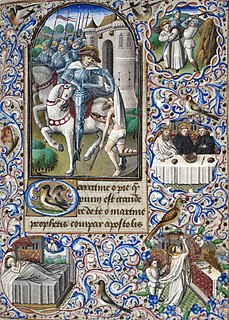 O Martine o pie q̃
pium est gaude
re de te o martine
prophetis compar apostolis